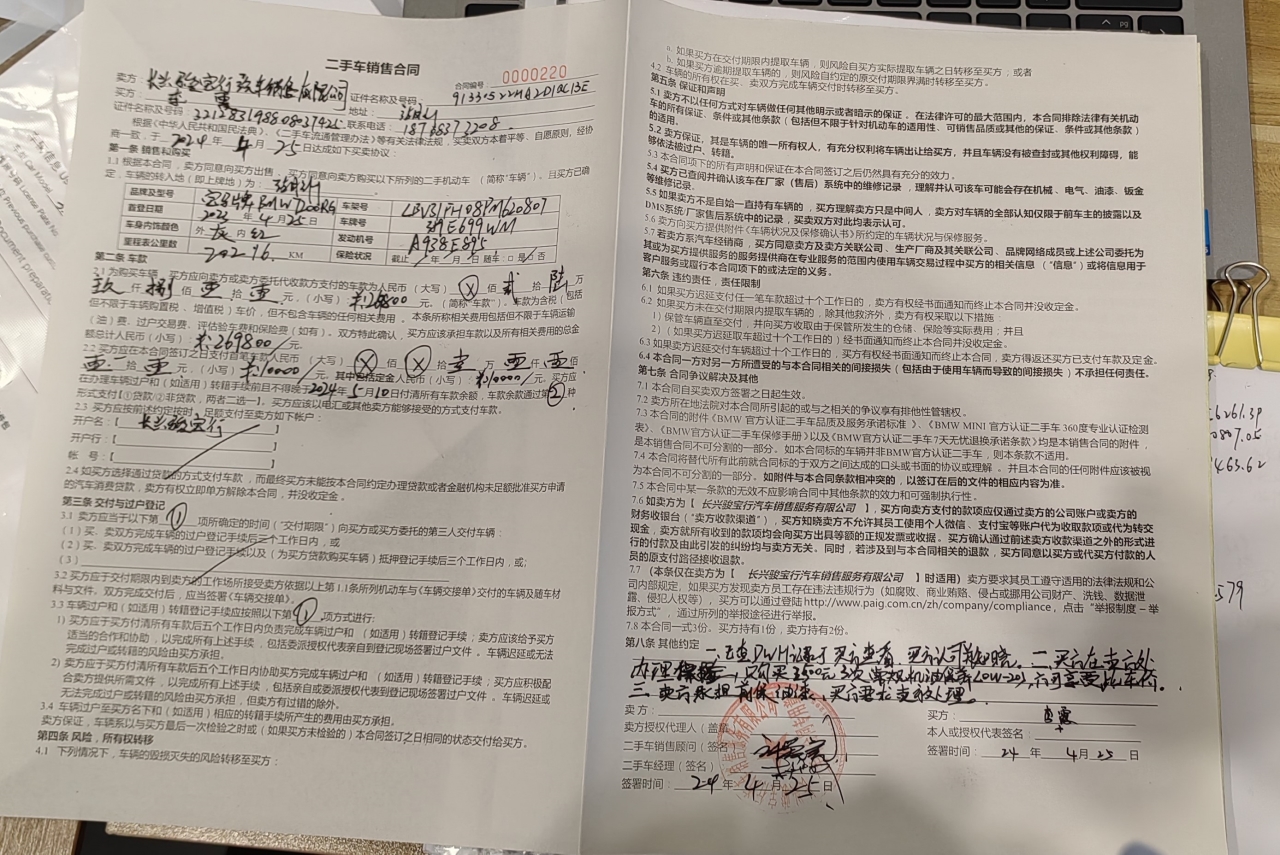 二手车销售合同
合同编号： 0000220
卖方： 证件名称及号码：
买方： 地址：
证件名称及号码 联系电话：
根据《中华人民共和国民法典》、《二手车流通管理办法》等有关法律法规，买卖双方本着平等、自愿原则，经协
商一致，于 2024 年 4 月 25 日达成如下买卖协议：
第一条 销售和购买
1.1 根据本合同，卖方同意向买方出售，买方同意向卖方购买以下所列的二手机动车 （简称“车辆”）。且买方已确
定，车辆的转入地（即上牌地）为：
品牌及型号 车架号
首登日期 2023 年 4 月 25 日 车牌号
车身内饰颜色 外 内 发动机号 A938E895
里程表公里数 20216 KM 保险状况 截止 年 月 日 随车：□是 □否
第二条 车款
2.1 为购买车辆，买方应向卖方或卖方委托代收款方支付的车款为人民币（大写） 佰 贰 拾 陆 万
玖 仟 捌 佰 壹 拾 壹 元，（小写） （简称“车款”）。车款为含税（包括
但不限于车辆购置税、增值税）车价，但不包含车辆的任何相关费用。本条所称相关费用包括但不限于车辆运输
（油）费、过户交易费、评估验车费和保险费（如有）。双方特此确认，买方应承担车款以及所有相关费用的总金
额总计人民币（小写）： 269800 元.
2.2 买方应在本合同签订之日支付首笔车款人民币 （大写） 佰 拾 壹 万 仟 佰
拾 元，（小写） 10000 元，其中包括定金人民币（小写）： 10000 元，买方应
在办理车辆过户和（如适用）转籍手续前且不得晚于 2024 年 5 月 10 日付清所有车款余额，车款余款通过第 ② 种
形式支付【①贷款②非贷款，两者二选一】。买方应该以电汇或其他卖方能够接受的方式支付车款。
2.3 买方应按前述约定按时、足额支付至卖方如下帐户：
开户名：【 】
开户行：【 】
帐 号：【 】
2.4 如买方选择通过贷款的方式支付车款，而最终买方未能按本合同约定办理贷款或者金融机构未足额批准买方申请
的汽车消费贷款，卖方有权立即单方解除本合同，并没收定金。
第三条 交付与过户登记
3.1 卖方应当于以下第 ① 项所确定的时间（“交付期限”）向买方或买方委托的第三人交付车辆：
（1）买、卖双方完成车辆的过户登记手续后三个工作日内，或
（2）买、卖双方完成车辆的过户登记手续以及（为买方贷款购买车辆）抵押登记手续后三个工作日内，或；
（3）
3.2 买方应于交付期限内到卖方的工作场所接受卖方依据以上第1.1条所列机动车与《车辆交接单》交付的车辆及随车材
料与文件。双方完成交付后，应当签署《车辆交接单》。
3.3 车辆过户和（如适用）转籍登记手续应按照以下第 ① 项方式进行:
1）买方应于买方付清所有车款后五个工作日内负责完成车辆过户和 （如适用）转籍登记手续；卖方应该给予买方
适当的合作和协助，以完成所有上述手续，包括委派授权代表亲自到登记现场签署过户文件。车辆迟延或无法
完成过户或转籍的风险由买方承担。
2）卖方应于买方付清所有车款后五个工作日内协助买方完成车辆过户和 （如适用）转籍登记手续；买方应积极配
合卖方提供所需文件，以完成所有上述手续，包括亲自或委派授权代表到登记现场签署过户文件。车辆迟延或
无法完成过户或转籍的风险由买方承担，但卖方有过错的除外。
3.4 车辆过户至买方名下和（如适用）相应的转籍手续所产生的费用由买方承担。
卖方保证，车辆系以与买方最后一次检验之时或（如果买方未检验的）本合同签订之日相同的状态交付给买方。
第四条 风险，所有权转移
4.1 下列情况下，车辆的毁损灭失的风险转移至买方：
a. 如果买方在交付期限内提取车辆，则风险自买方实际提取车辆之日转移至买方；或者
b. 如果买方逾期提取车辆的，则风险自约定的原交付期限界满时转移至买方。
4.2 车辆的所有权在买、卖双方完成车辆交付时转移至买方。
第五条 保证和声明
5.1 卖方不以任何方式对车辆做任何其他明示或者暗示的保证。在法律许可的最大范围内，本合同排除法律有关机动
车的所有保证、条件或其他条款（包括但不限于针对机动车的适用性、可销售品质或其他的保证、条件或其他条款）
的适用。
5.2 卖方保证，其是车辆的唯一所有权人，有充分权利将车辆出让给买方，并且车辆没有被查封或其他权利障碍，能
够依法被过户、转籍。
5.3 本合同项下的所有声明和保证在本合同签订之后仍然具有充分的效力。
5.4 买方已查阅并确认该车在厂家（售后）系统中的维修记录，理解并认可该车可能会存在机械、电气、油漆、钣金
等维修记录。
5.5 如果卖方不是自始一直持有车辆的，买方理解卖方只是中间人，卖方对车辆的全部认知仅限于前车主的披露以及
DMS系统/厂家售后系统中的记录，买卖双方对此均表示认可。
5.6 卖方向买方提供附件《车辆状况及保修确认书》所约定的车辆状况与保修服务。
5.7 若卖方系汽车经销商，买方同意卖方及卖方关联公司、生产厂商及其关联公司、品牌网络成员或上述公司委托为
其或为买方提供服务的服务提供商在专业服务的范围内使用车辆交易过程中买方的相关信息（“信息”）或将信息用于
客户服务或履行本合同项下的或法定的义务。
第六条 违约责任，责任限制
6.1 如果买方迟延支付任一笔车款超过十个工作日的，卖方有权经书面通知而终止本合同并没收定金。
6.2 如果买方未在交付期限内提取车辆的，除其他救济外，卖方有权采取以下措施：
1）保管车辆直至交付，并向买方收取由于保管所发生的仓储、保险等实际费用；并且
2）（如果买方迟延取车超过十个工作日的）经书面通知而终止本合同并没收定金。
6.3 如果卖方迟延交付车辆超过十个工作日的，买方有权经书面通知而终止本合同，卖方得返还买方已支付车款及定金。
6.4 本合同一方对另一方所遭受的与本合同相关的间接损失（包括由于使用车辆而导致的间接损失）不承担任何责任。
第七条 合同争议解决及其他
7.1 本合同自买卖双方签署之日起生效。
7.2 卖方所在地法院对本合同所引起的或与之相关的争议享有排他性管辖权。
7.3 本合同的附件《BMW 官方认证二手车品质及服务承诺标准》、《BMW MINI 官方认证二手车 360度专业认证检测
表》、《BMW官方认证二手车保修手册》以及《BMW官方认证二手车 7天无忧退换承诺条款》均是本销售合同的附件，
是本销售合同不可分割的一部分。如本合同标的车辆并非BMW官方认证二手车，则本条款不适用。
7.4 本合同将替代所有此前就合同标的于双方之间达成的口头或书面的协议或理解。并且本合同的任何附件应该被视
为本合同不可分割的一部分。如附件与本合同条款相冲突的，以签订在后的文件的相应内容为准。
7.5 本合同中某一条款的无效不应影响合同中其他条款的效力和可强制执行性。
7.6 如卖方为【 长兴骏宝行汽车销售服务有限公司 】，买方向卖方支付的款项应仅通过卖方的公司账户或卖方的
财务收银台（“卖方收款渠道”），买方知晓卖方不允许其员工使用个人微信、支付宝等账户代为收取款项或代为转交
现金，卖方就所有收到的款项均会向买方出具等额的正规发票或收据。买方确认通过前述卖方收款渠道之外的形式进
行的付款及由此引发的纠纷均与卖方无关。同时，若涉及到与本合同相关的退款，买方同意以买方或代买方付款的人
员的原支付路径接收退款。
7.7 （本条仅在卖方为【 长兴骏宝行汽车销售服务有限公司 】时适用）卖方要求其员工遵守适用的法律法规和公
司内部规定，如果买方发现卖方员工存在违法违规行为（如腐败、商业贿赂、侵占或挪用公司财产、洗钱、数据泄
露、侵犯人权等），买方可以通过登陆 http://www.paig.com.cn/zh/company/compliance，点击“举报制度－举
报方式”，通过所列的举报途径进行举报。
7.8 本合同一式3份。买方持有1份，卖方持有2份。
第八条 其他约定
卖方： 买方：
卖方授权代理人（盖章 本人或授权代表签名：
二手车销售顾问（签名） 签署时间： 24 年 4 月 25 日
二手车经理（签名）
签署时间： 24 年 4 月 25 日